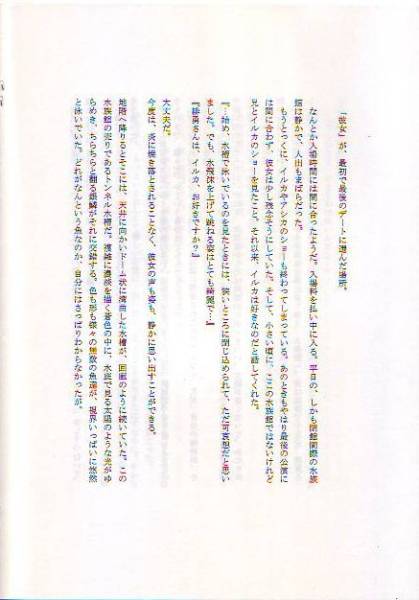 「彼女」が、最初で最後のデートに選んだ場所。
なんとか入場時間には間に合ったようだ。入場料を払い中に入る。平日の、しかも閉館間際の水族
館は静かで、人出もまばらだった。
もうとっくに、イルカやアシカのショーも終わってしまっている。あのときもやはり最後の公演に
は間に合わず、彼女は少し残念そうにしていた。そして、小さい頃に、ここの水族館ではないけれど
兄とイルカのショーを見たこと、それ以来、イルカは好きなのだと話してくれた。
『…始め、水槽で泳いでいるのを見たときには、狭いところに閉じ込められて、ただ可哀想だと思い
ました。でも、水飛沫を上げて跳ねる姿はとても綺麗で…』
さんは、イルカ、お好きですか？』
大丈夫だ。
今度は、炎に焼き落とされることなく、彼女の声も姿も、静かに思い出すことができる。
地階へ降りるとそこには、天井に向かいドーム状に湾曲した水槽が、回廊のように続いていた。この
水族館の売りであるトンネル水槽だ。複雑に濃淡を描く蒼色の中に、水底で見る太陽のような光がゆ
らめき、ちらちらと翻る銀鱗がそれに交錯する。色も形も様々の無数の魚達が、視界いっぱいに悠然
と泳いでいた。どれがなんという魚なのか、自分にはさっぱりわからなかったが。